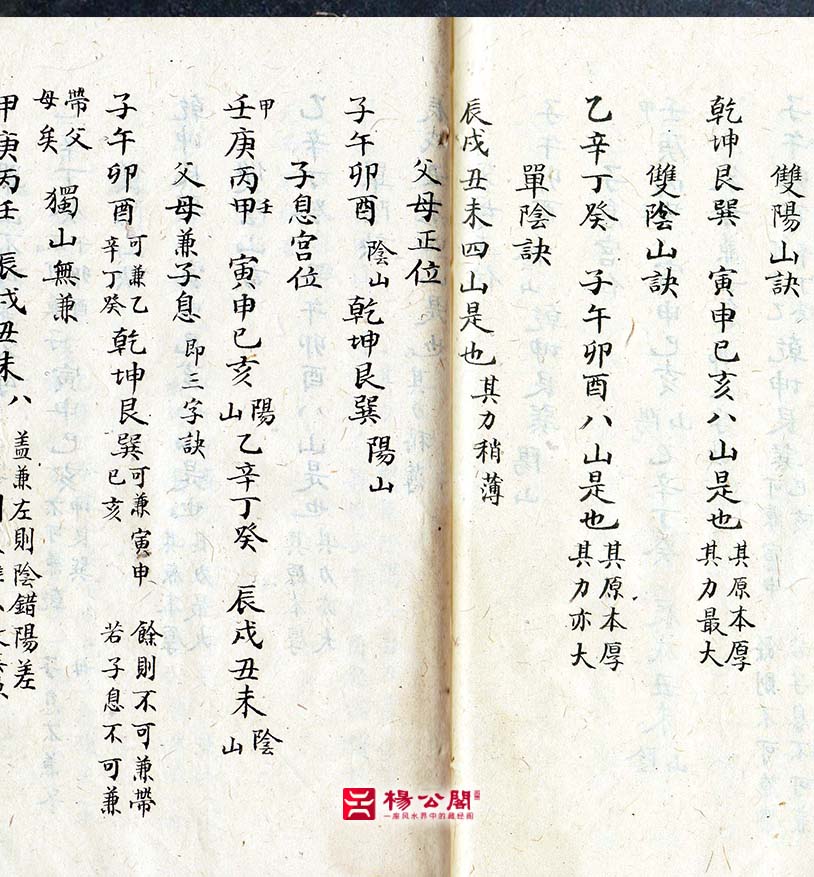 雙陽山訣
乾坤艮巽 寅申巳亥八山是也 其原本厚 其力最大
雙陰山訣
乙辛丁癸 子午卯酉八山是也 其原本厚 其力亦大
單陰訣
辰戌丑未四山是也 其力稍薄
父母正位
子午卯酉 陰山 乾坤艮巽 陽山
子息宫位
甲
壬庚丙甲 壬 寅申巳亥 陽山 乙辛丁癸 辰戌丑未 陰山
父母兼子息 即三字訣
子午卯酉 可兼乙辛丁癸 乾坤艮巽 可兼寅申巳亥 餘則不可兼帶 若子息不可兼
帶父母矣 獨山無兼
甲庚丙壬 辰戌丑未八 蓋兼左則陰錯陽差
楊公閣
一座风水界中的藏经阁